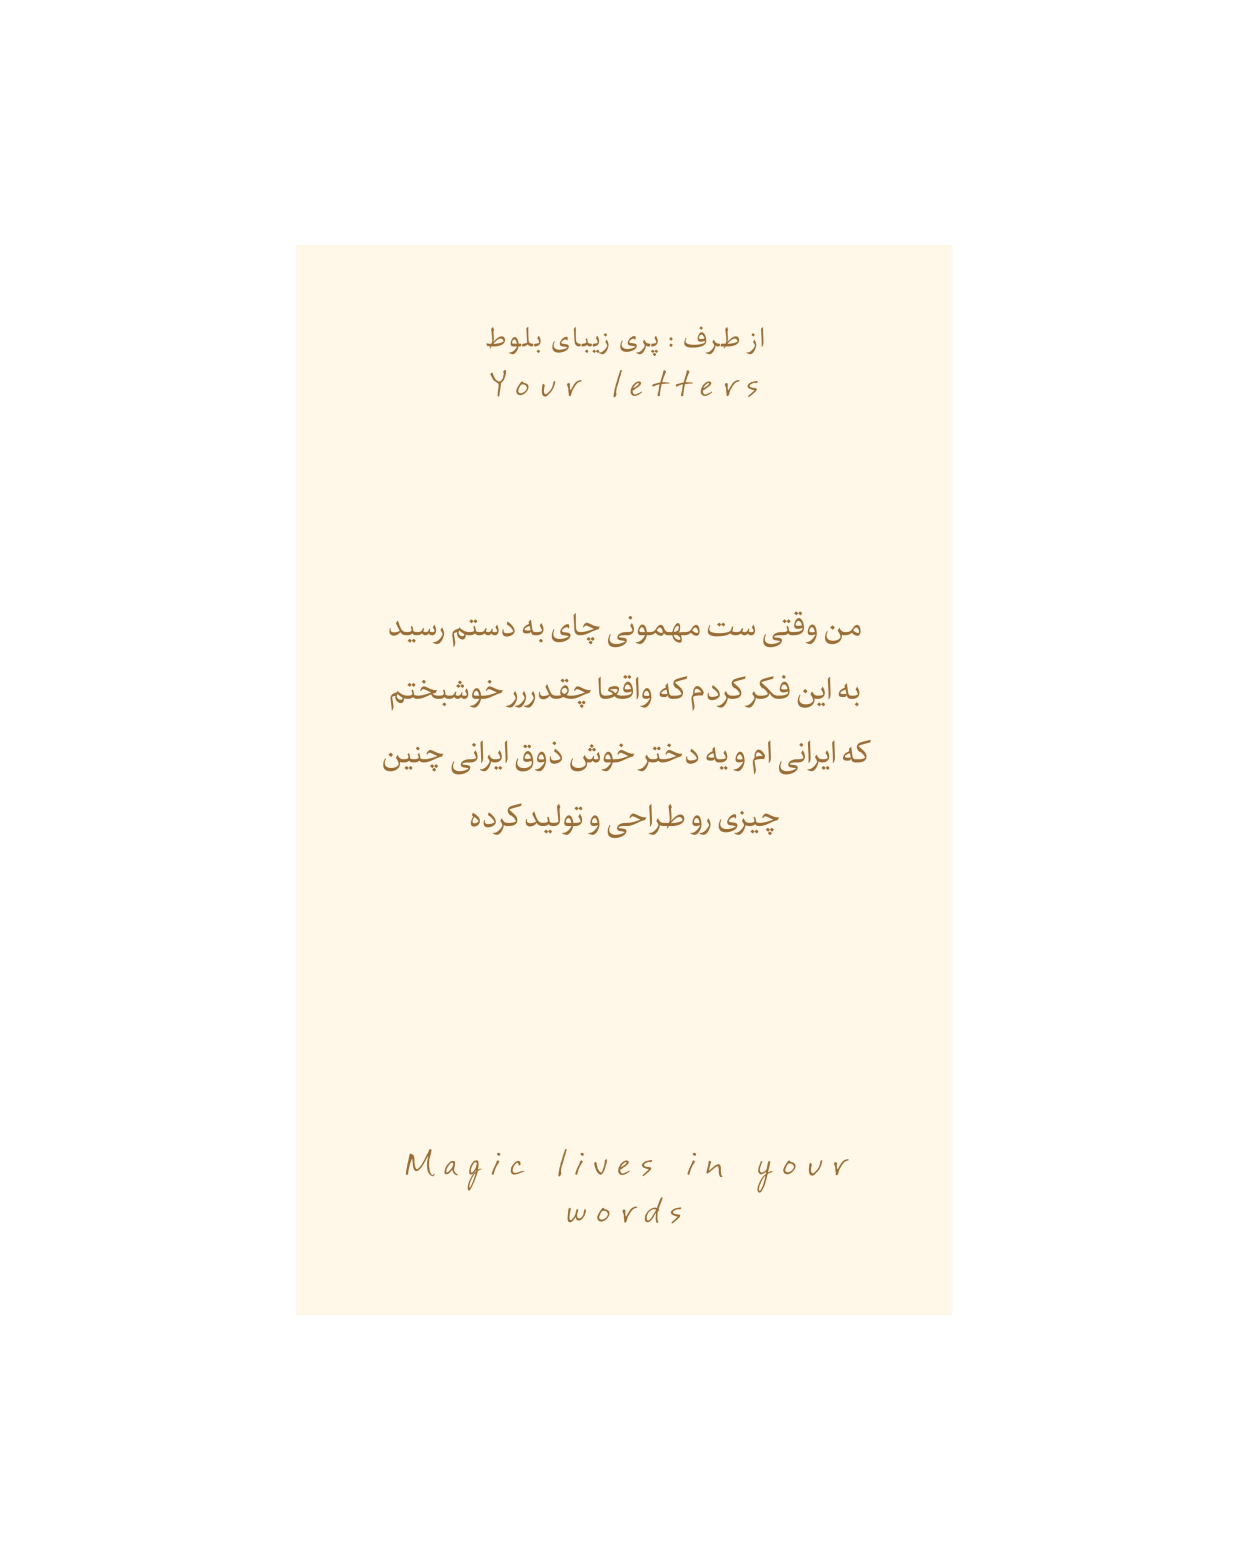 از طرف : پری زیبای بلوط
Your letters
من وقتی ست مهمونی چای به دستم رسید
به این فکر کردم که واقعا چقدررر خوشبختم
که ایرانی ام و یه دختر خوش ذوق ایرانی چنین
چیزی رو طراحی و تولید کرده
Magic lives in your
words